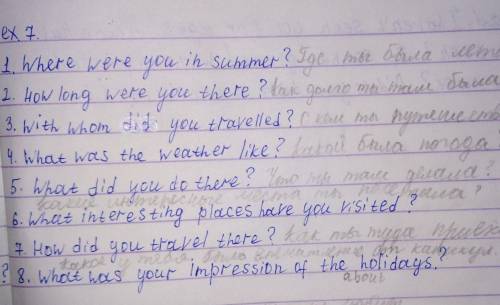 ex 7.
1. Where were you in summer? Где ты была лето
2. How long were you there? Как долго ты там была
3. With whom did you travelled? С кем ты путешество
4. What was the weather like? Какой была погода?
5. What did you do there? Что ты там делала?
какие интересные места ты посещала?
6. What interesting places have you visited?
7. How did you travel there? Как ты туда приех
какое у тебя было от каникул.
? 8. What was your impression of the holidays?
about